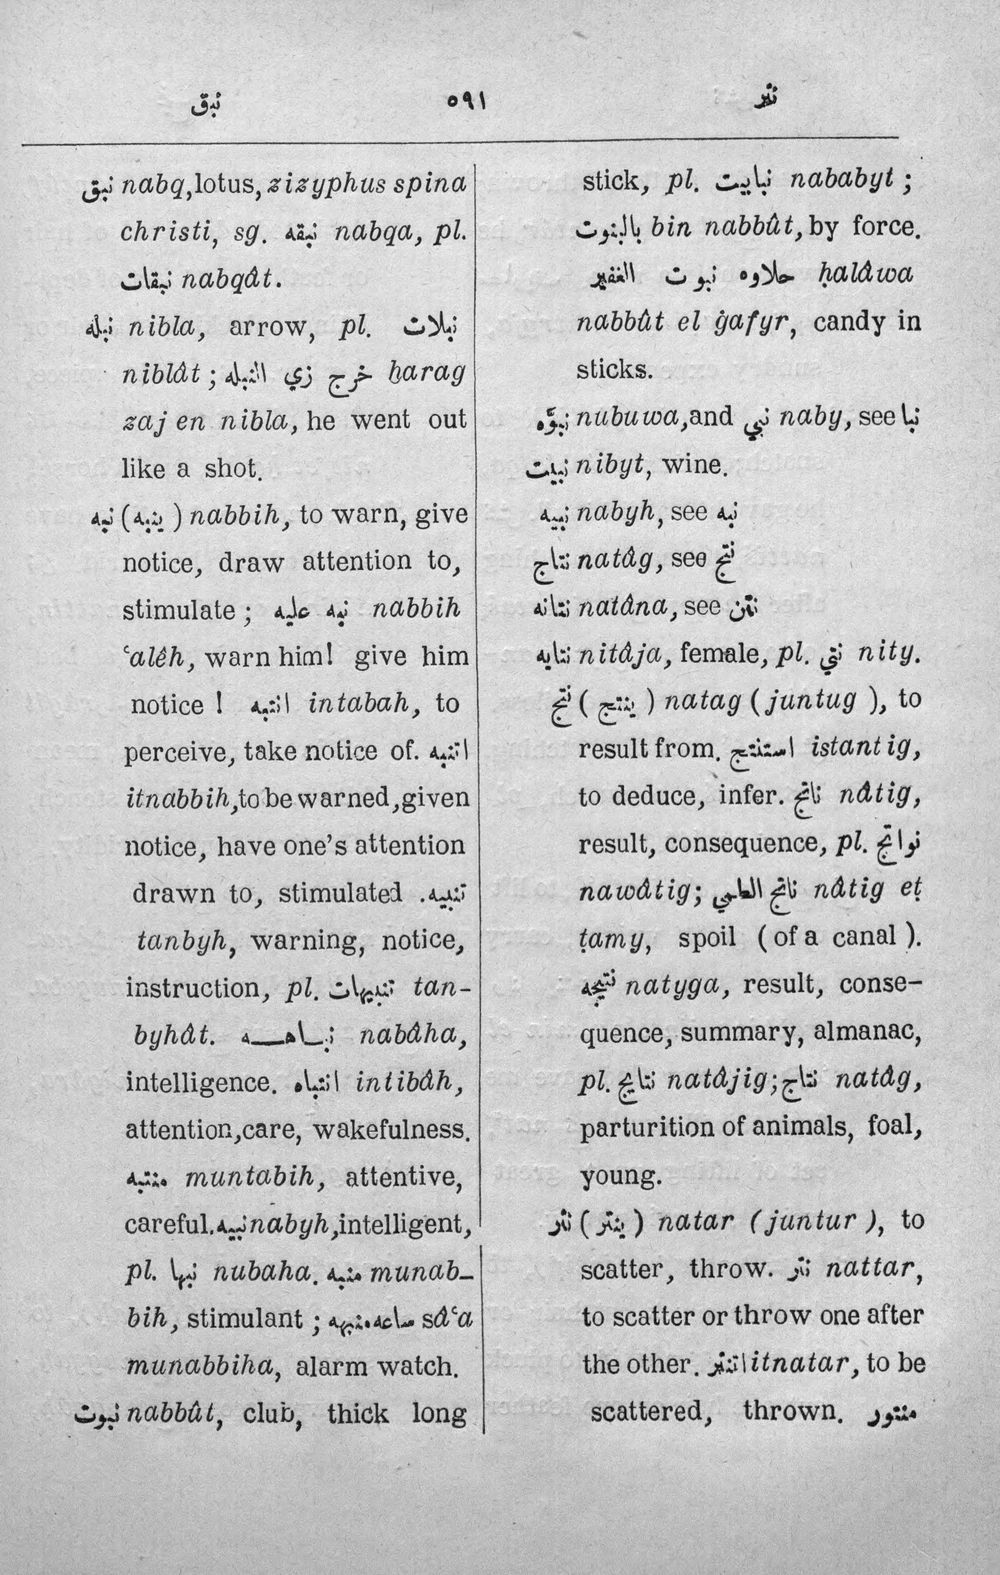 نبق ٥٩١ نثر
نبق nabq, lotus, zizyphus spina
christi, sg. نبقه nabqa, pl.
نبقات nabqât.
نبله nibla, arrow, pl. نبلات
niblât ; خرج زي النبله ḫarag
zaj en nibla, he went out
like a shot.
نبه (ينبه) nabbih, to warn, give
notice, draw attention to,
stimulate ; نبه عليه nabbih
ʿalêh, warn him! give him
notice ! انتبه intabah, to
perceive, take notice of. اتنبه
itnabbih, to be warned, given
notice, have one's attention
drawn to, stimulated. تنبيه
tanbyh, warning, notice,
instruction, pl. تنبيهات tan-
byhât. نباهه nabâha,
intelligence. انتباه intibâh,
attention, care, wakefulness.
منتبه muntabih, attentive,
careful. نبيه nabyh, intelligent,
pl. نبها nubaha. منبه munab-
bih, stimulant ; ساعه منبهه sâʿa
munabbiha, alarm watch.
نبوت nabbût, club, thick long
stick, pl. نبابيت nababyt ;
بالنبوت bin nabbût, by force.
حلاوه نبوت الغفير ḥalâwa
nabbût el ġafyr, candy in
sticks.
نبوّه nubuwa, and نبي naby, see نبا
نبيت nibyt, wine.
نبيه nabyh, see نبه
نتاج natâg, see نتج
نتانه natâna, see نتن
نتايه nitâja, female, pl. نتي nity.
نتج (ينتج) natag (juntug), to
result from. استنتج istantig,
to deduce, infer. ناتج nâtig,
result, consequence, pl. نواتج
nawâtig; ناتج الطمي nâtig eṭ
ṭamy, spoil (of a canal).
نتيجه natyga, result, conse-
quence, summary, almanac,
pl. نتايج natâjig; نتاج natâg,
parturition of animals, foal,
young.
نتر (ينتر) natar (juntur), to
scatter, throw. نتر nattar,
to scatter or throw one after
the other. اتنتر itnatar, to be
scattered, thrown. منتور